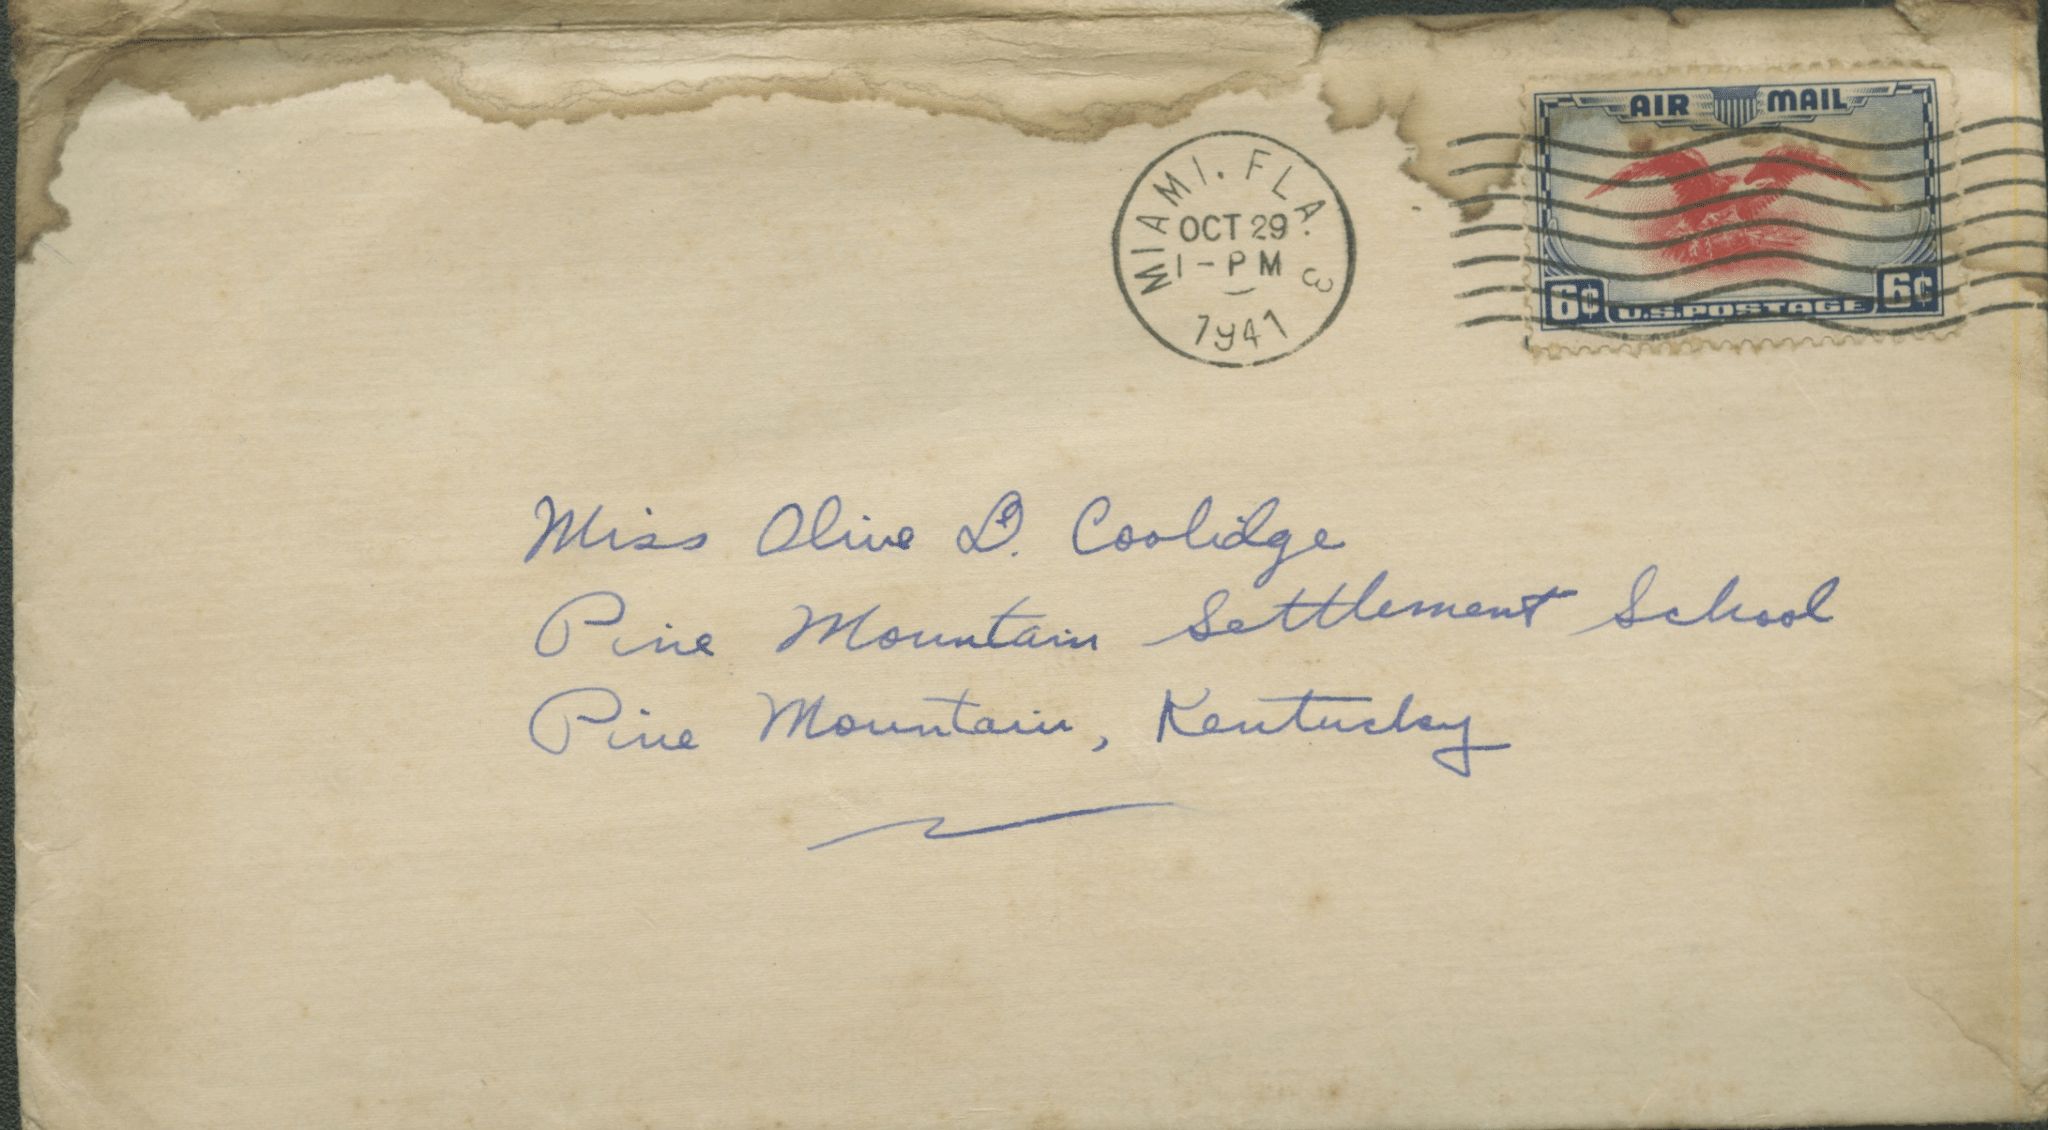 AIR MAIL
MIAMI, FLA. 3
OCT 29
1-PM
1941
6¢ U.S. POSTAGE 6¢
Miss Olive D. Coolidge
Pine Mountain Settlement School
Pine Mountain, Kentucky